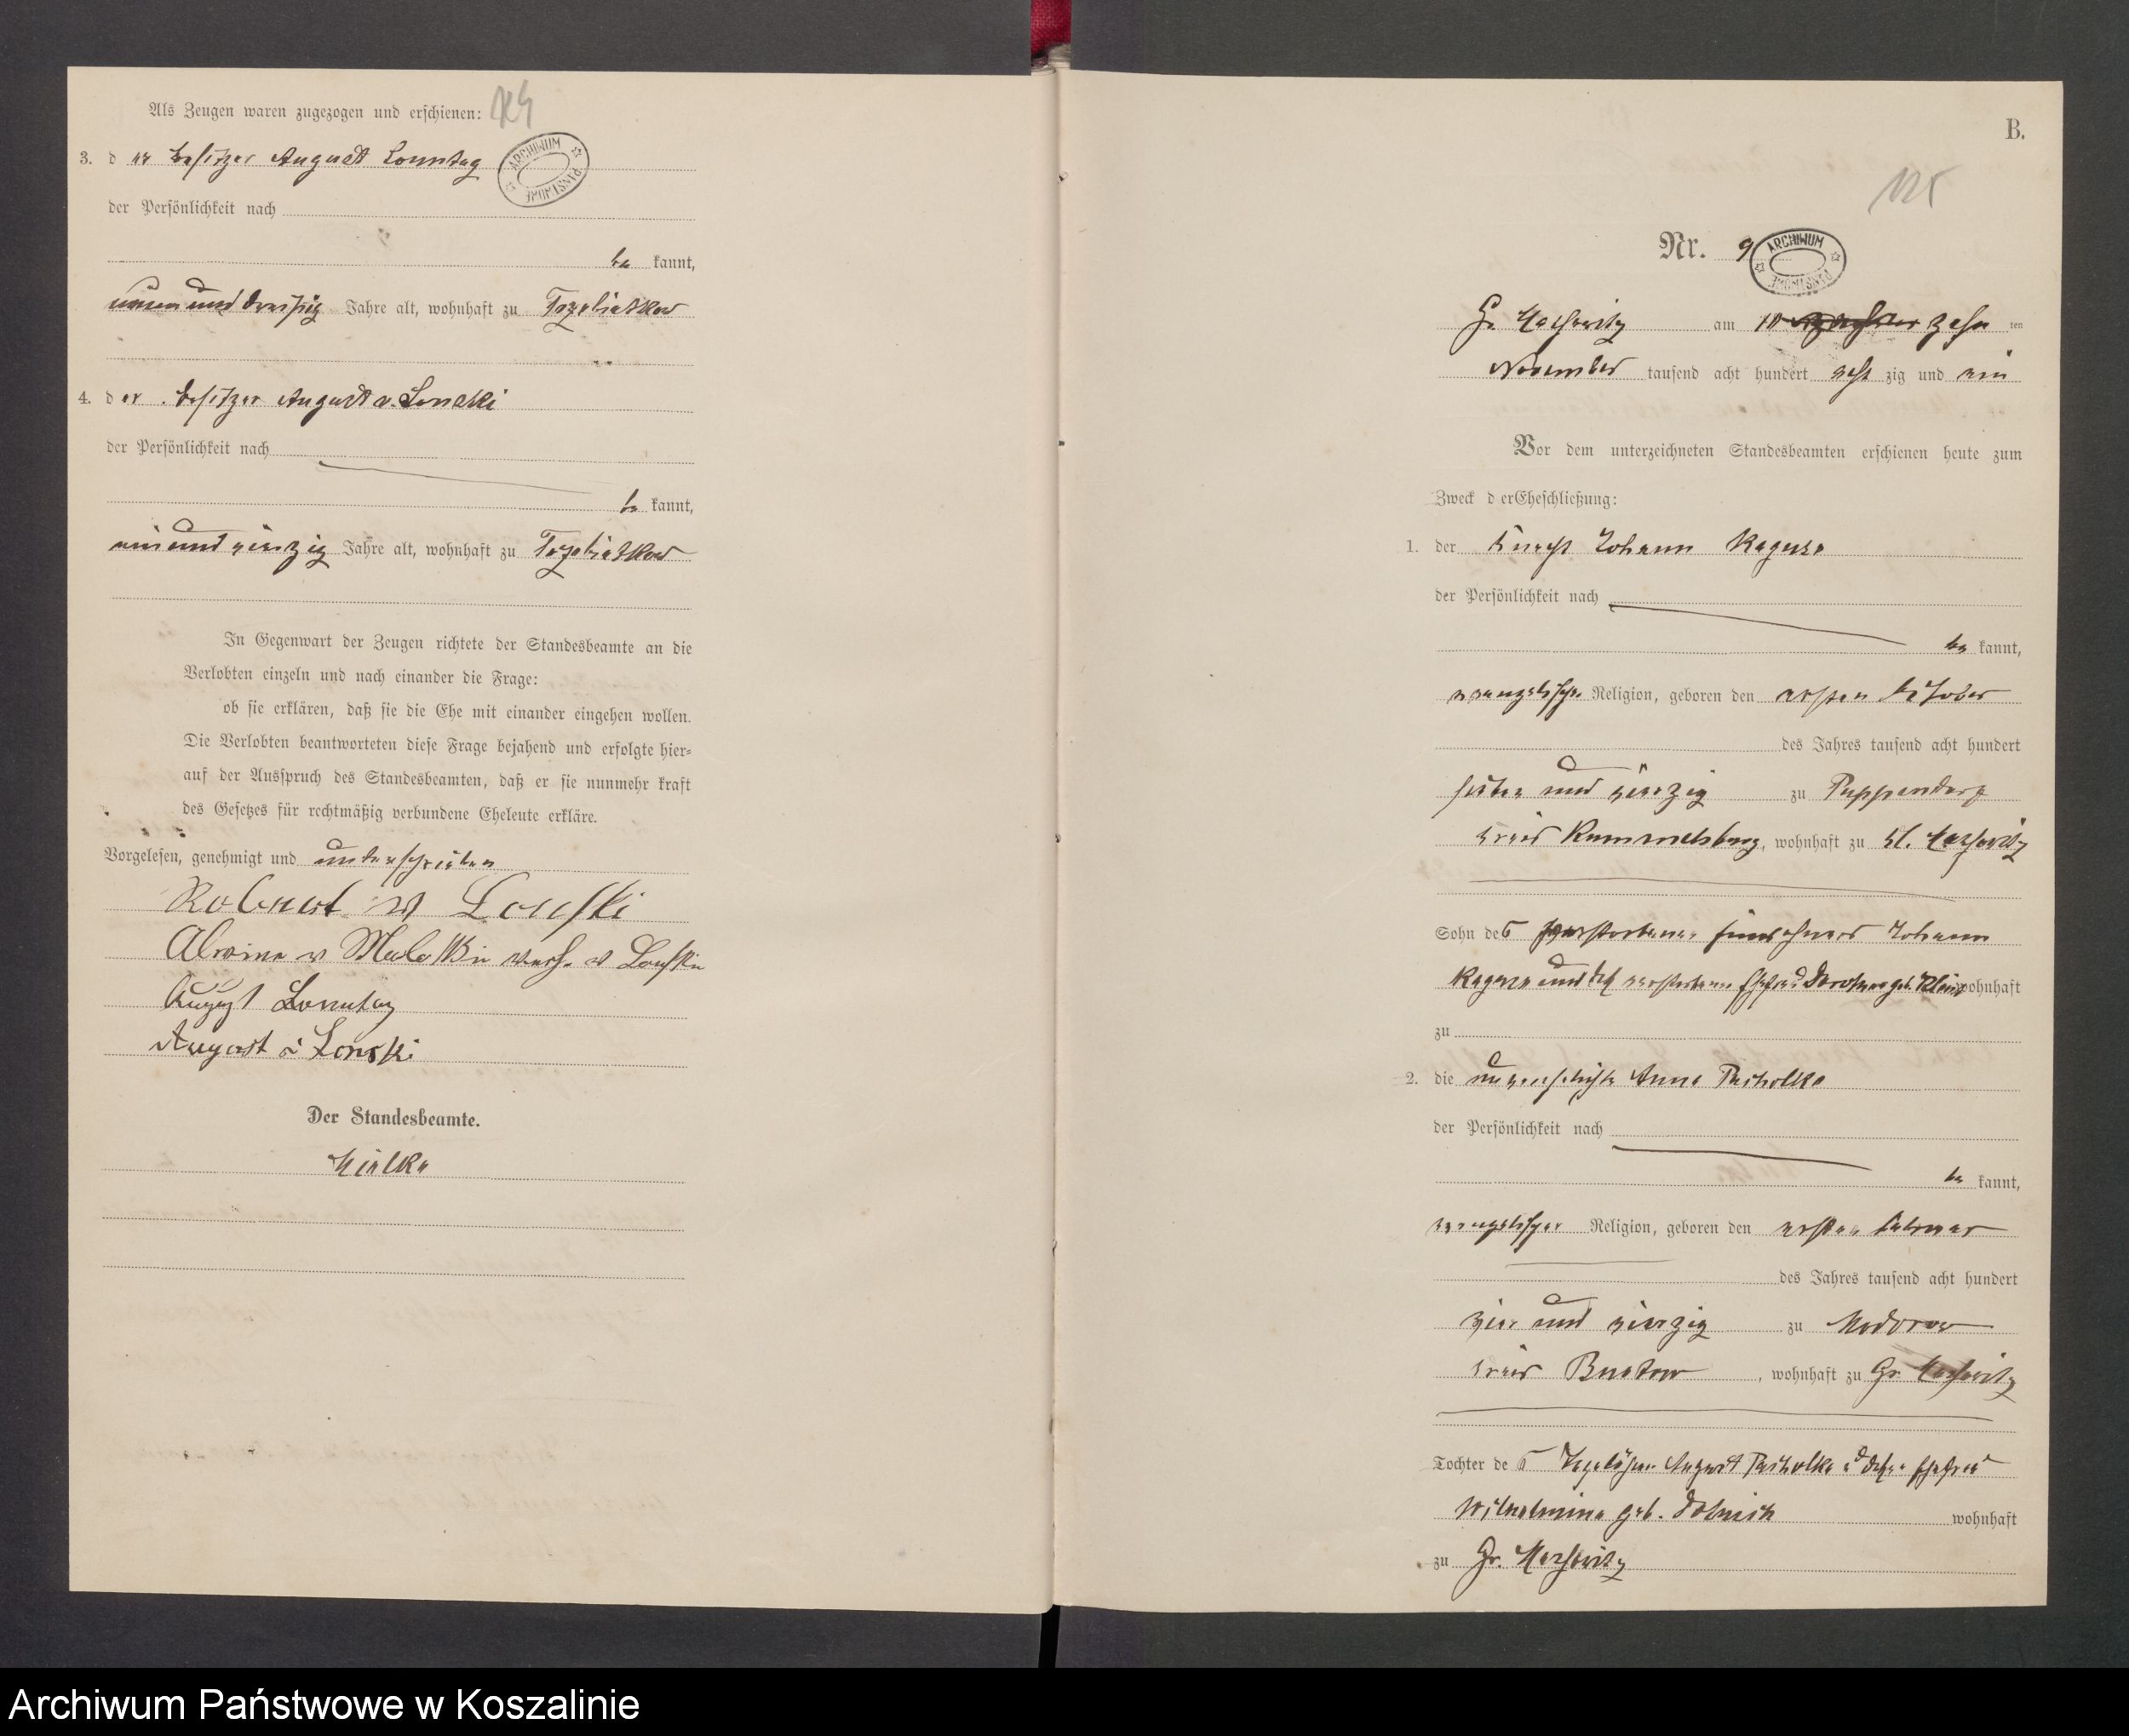 Als Zeugen waren zugezogen und erschienen:
ARCHIWUM PAŃSTWOWE
3. d er Besitzer August Sonntag
der Persönlichkeit nach
be kannt,
neun und dreißig Jahre alt, wohnhaft zu Trzebiatkow
4. d er Besitzer August v. Lonski
der Persönlichkeit nach
be kannt,
ein und vierzig Jahre alt, wohnhaft zu Trzebiatkow
In Gegenwart der Zeugen richtete der Standesbeamte an die
Verlobten einzeln und nach einander die Frage:
ob sie erklären, daß sie die Ehe mit einander eingehen wollen.
Die Verlobten beantworteten diese Frage bejahend und erfolgte hier-
auf der Ausspruch des Standesbeamten, daß er sie nunmehr kraft
des Gesetzes für rechtmäßig verbundene Eheleute erkläre.
Vorgelesen, genehmigt und unterschrieben
Robert v Lonski
Alwine v verh. v Lonski
August Sonntag
August v Lonski
Der Standesbeamte.
Mielke
B.
125
Nr. 9
ARCHIWUM PAŃSTWOWE
Gr. am zehn ten
November tausend acht hundert acht zig und ein
Vor dem unterzeichneten Standesbeamten erschienen heute zum
Zweck d er Eheschließung:
1. der Knecht Johann Raguse
der Persönlichkeit nach
be kannt,
evangelischer Religion, geboren den ersten Oktober
des Jahres tausend acht hundert
sieben und vierzig zu Puppendorf
Kreis Rummelsburg, wohnhaft zu Kl.
Sohn des verstorbenen Einwohners Johann
Raguse und der verstorbenen Ehefrau Dorothea geb. Klein wohnhaft
zu
2. die unverehelichte Anna Pusholke
der Persönlichkeit nach
be kannt,
evangelischer Religion, geboren den ersten Februar
des Jahres tausend acht hundert
vier und vierzig zu Modrow
Kreis Buetow, wohnhaft zu Gr.
Tochter de s Tagelöhner August und dessen Ehefrau
Wilhelmine geb. wohnhaft
zu Gr.
Archiwum Państwowe w Koszalinie